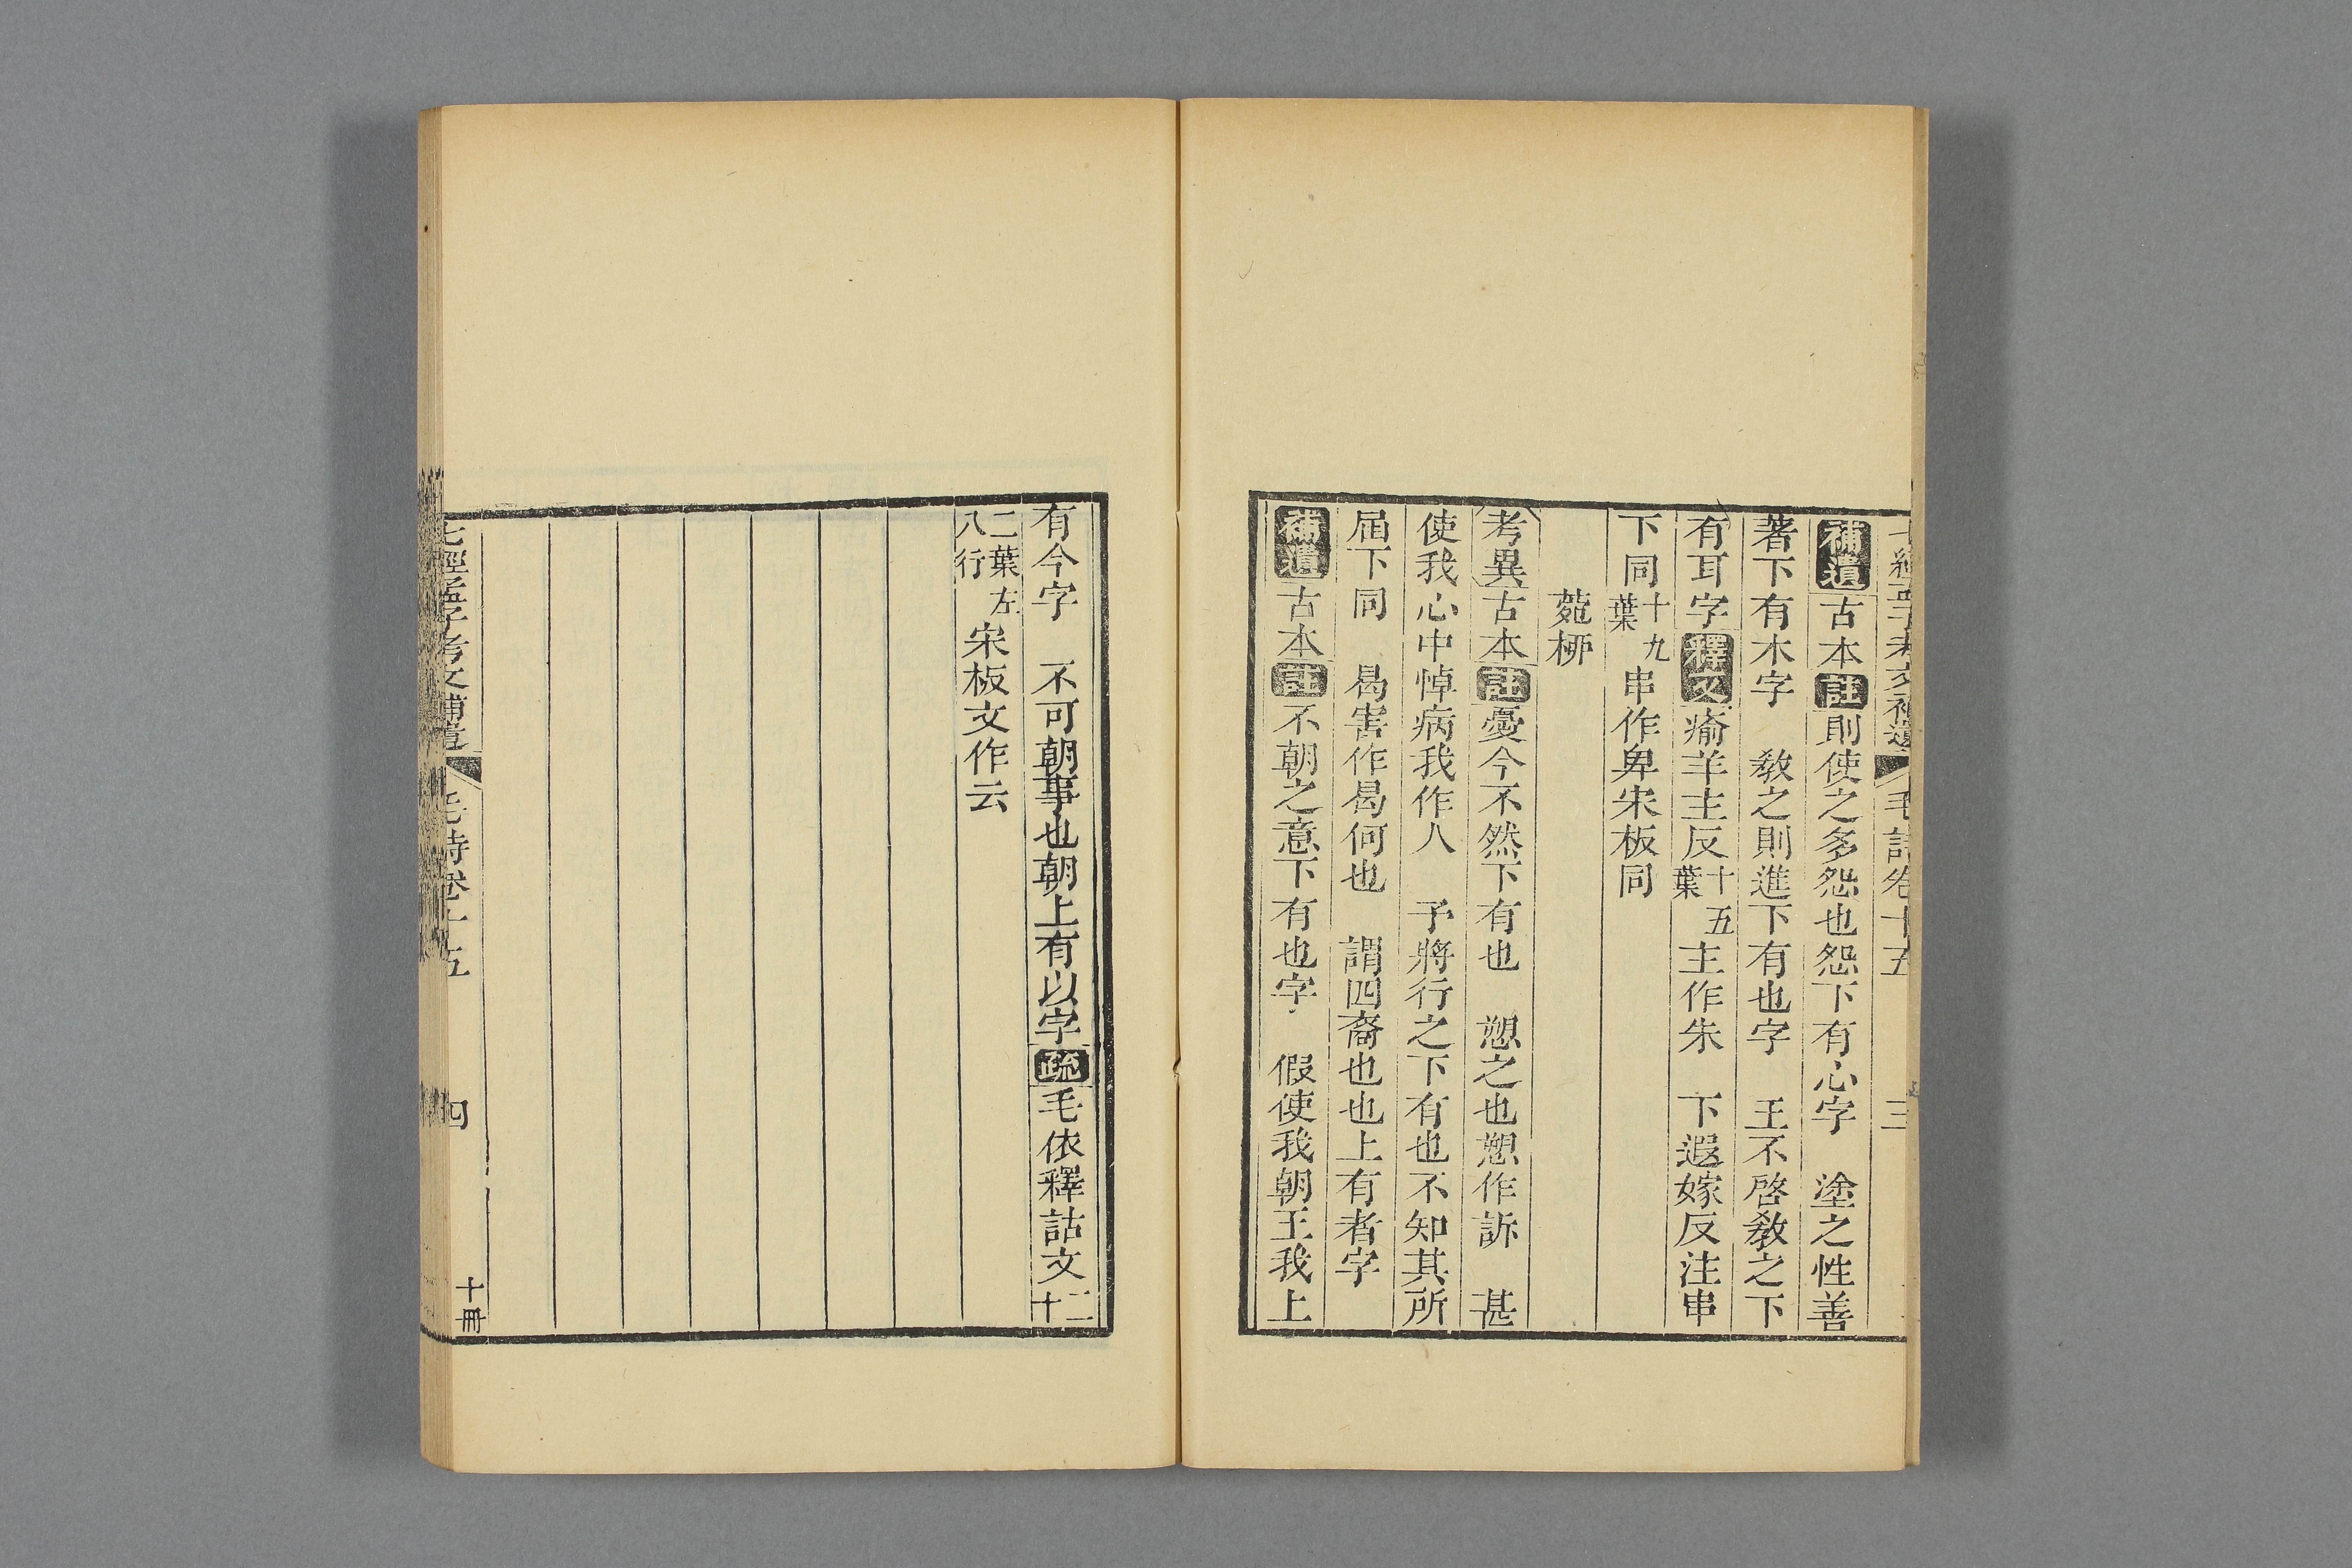 七經孟子考文補遺 毛詩卷十五 三
補遺古本註則使之多怨也怨下有心字 塗之性善
著下有木字 敎之則進下有也字 王不啓敎之下
有耳字釋文瘉羊主反十五葉主作朱 下遐嫁反注串
下同十九葉串作卑宋板同
菀桺
考異古本註憂今不然下有也 愬之也愬作訴 甚
使我心中悼病我作人 予將行之下有也不知其所
屆下同 曷害作曷何也 謂四裔也也上有者字
補遺古本註不朝之意下有也字 假使我朝王我上
有今字 不可朝事也朝上有以字疏毛依釋詁文十二
二葉左八行宋板文作云
七經孟子考文補遺 毛詩卷十五 四 十冊